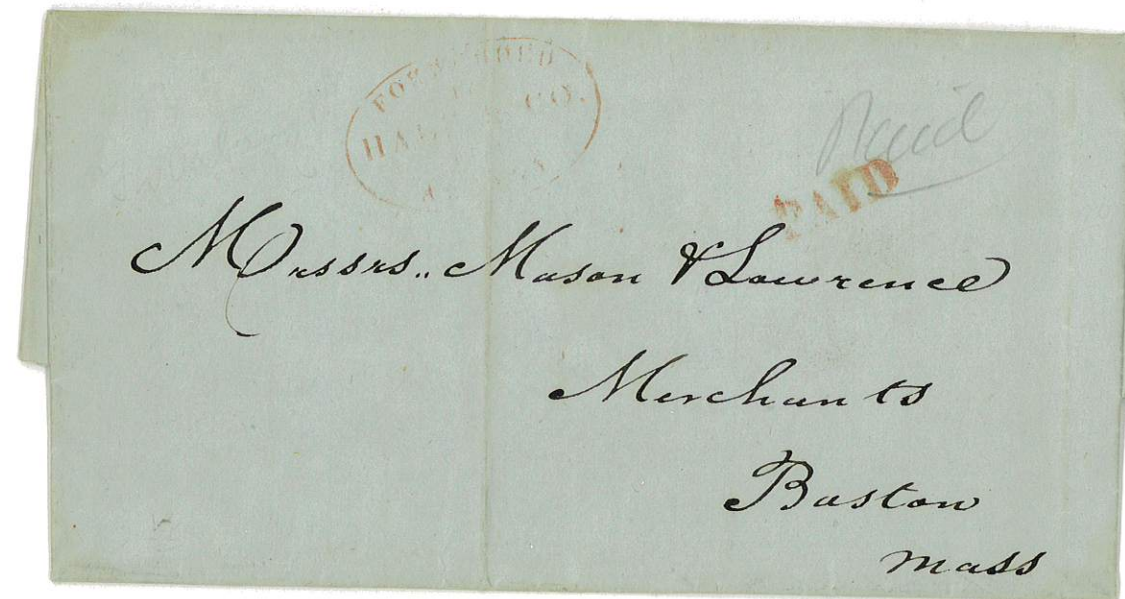 FORWARDED
CO.
Paid
PAID
Messrs., Mason & Lawrence
Merchants
Boston
Mass